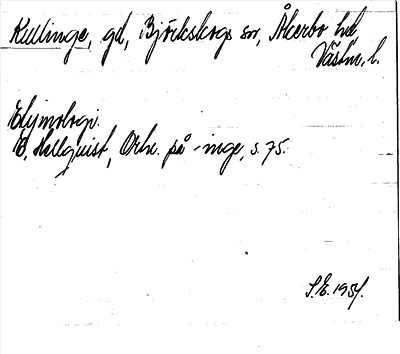 Kullinge, gd, Björkskogs sn, Åkerbo hd,
Västm. l.
Etymologi.
E. Hellquist, Ortn. på -inge, s. 75.
S.E. 1951.